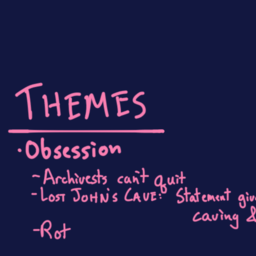 THEMES
• Obsession
~ Archivests can't quit
- LOST JOHN'S CAVE: Statement give
caving &
-Rot